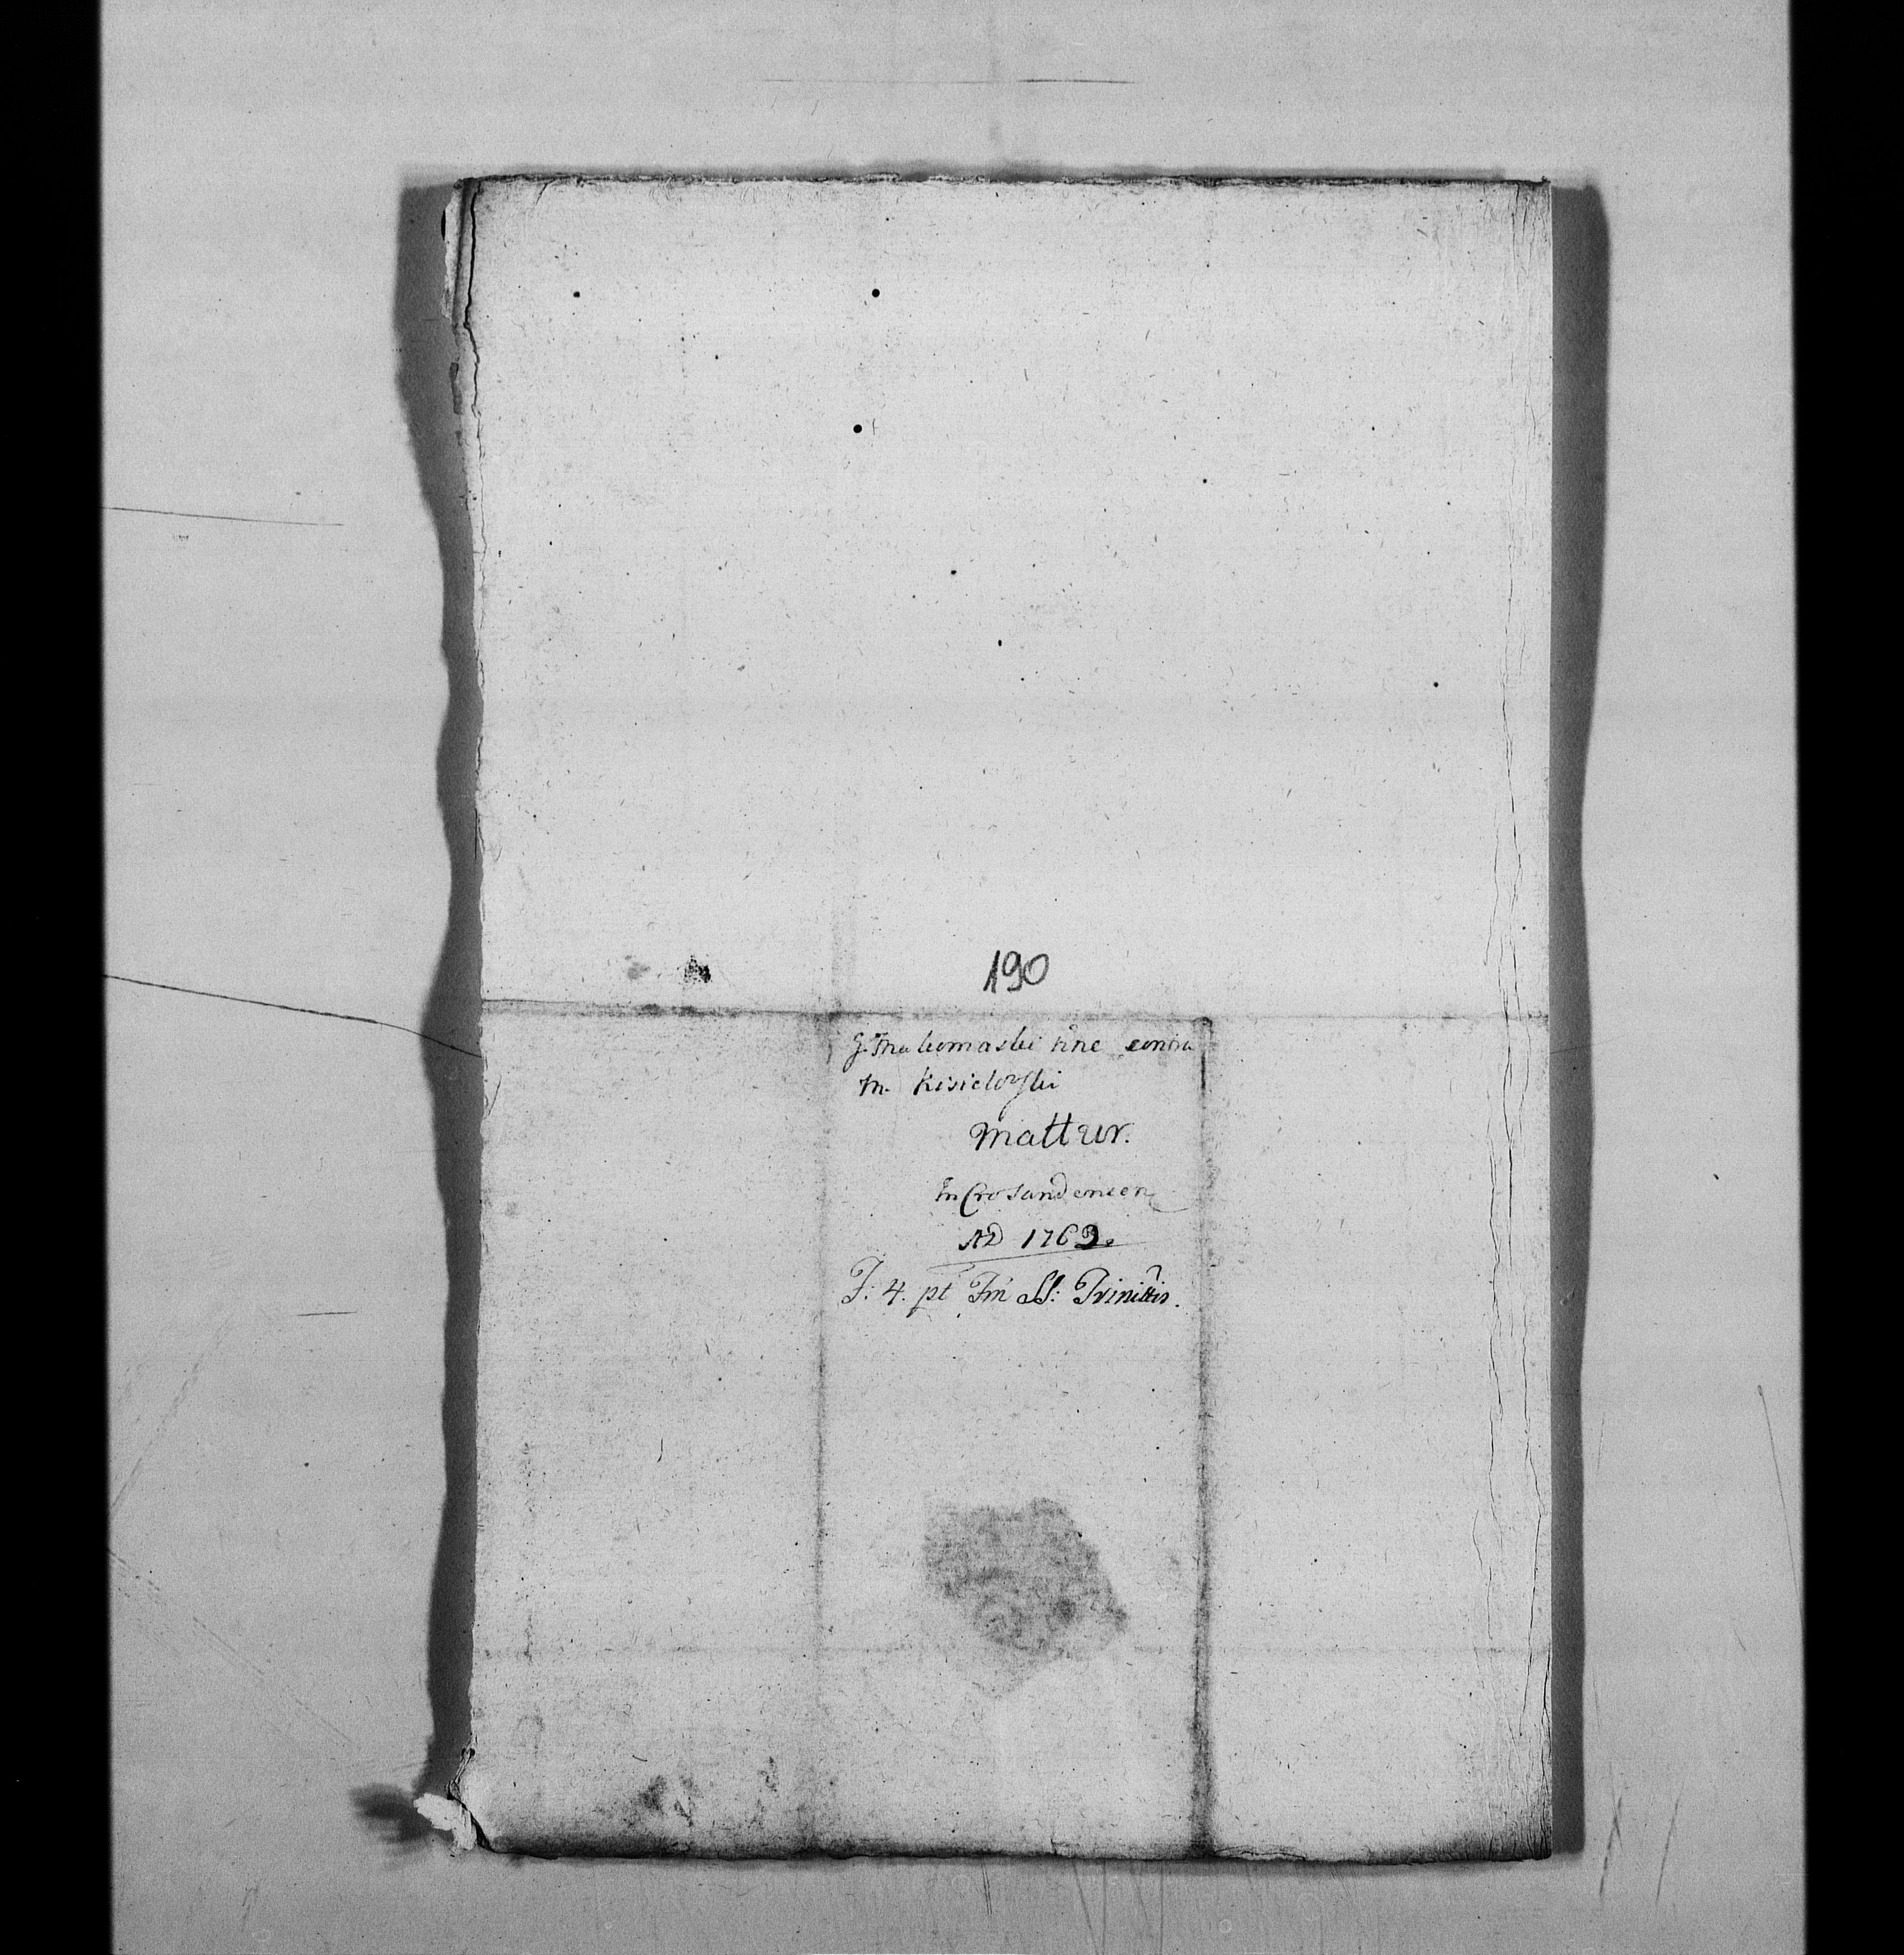 190
G. Makomaski hine contra
M. Kisielowski
Mattur.
In Cro Sandensen
AD 1763.
F: 4. pt Fm SS: Trinittis.